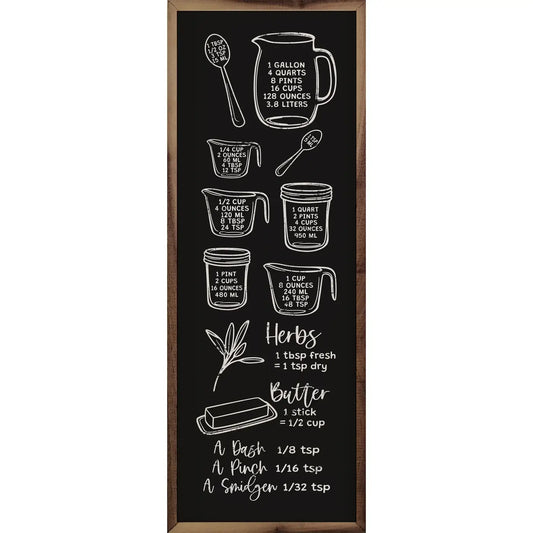 1 TBSP
1/2 OZ
3 TSP
15 ML
1 GALLON
4 QUARTS
8 PINTS
16 CUPS
128 OUNCES
3.8 LITERS
1/4 CUP
2 OUNCES
60 ML
4 TBSP
12 TSP
1 TSP
5 ML
1/2 CUP
4 OUNCES
120 ML
8 TBSP
24 TSP
1 QUART
2 PINTS
4 CUPS
32 OUNCES
950 ML
1 PINT
2 CUPS
16 OUNCES
480 ML
1 CUP
8 OUNCES
240 ML
16 TBSP
48 TSP
Herbs
1 tbsp fresh
= 1 tsp dry
Butter
1 stick
= 1/2 cup
A Dash 1/8 tsp
A Pinch 1/16 tsp
A Smidgen 1/32 tsp